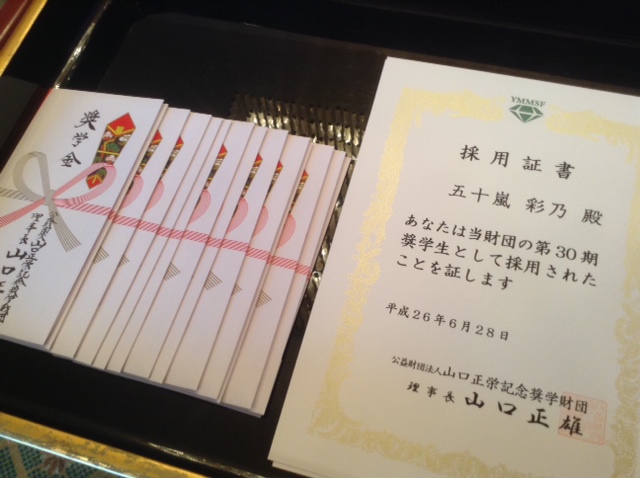 奨学金
公益財団法人山口正栄記念奨学財団
理事長 山口正
YMMSF
採用証書
五十嵐 彩乃 殿
あなたは当財団の第30期
奨学生として採用された
ことを証します
平成26年6月28日
公益財団法人山口正栄記念奨学財団
理事長 山口正雄